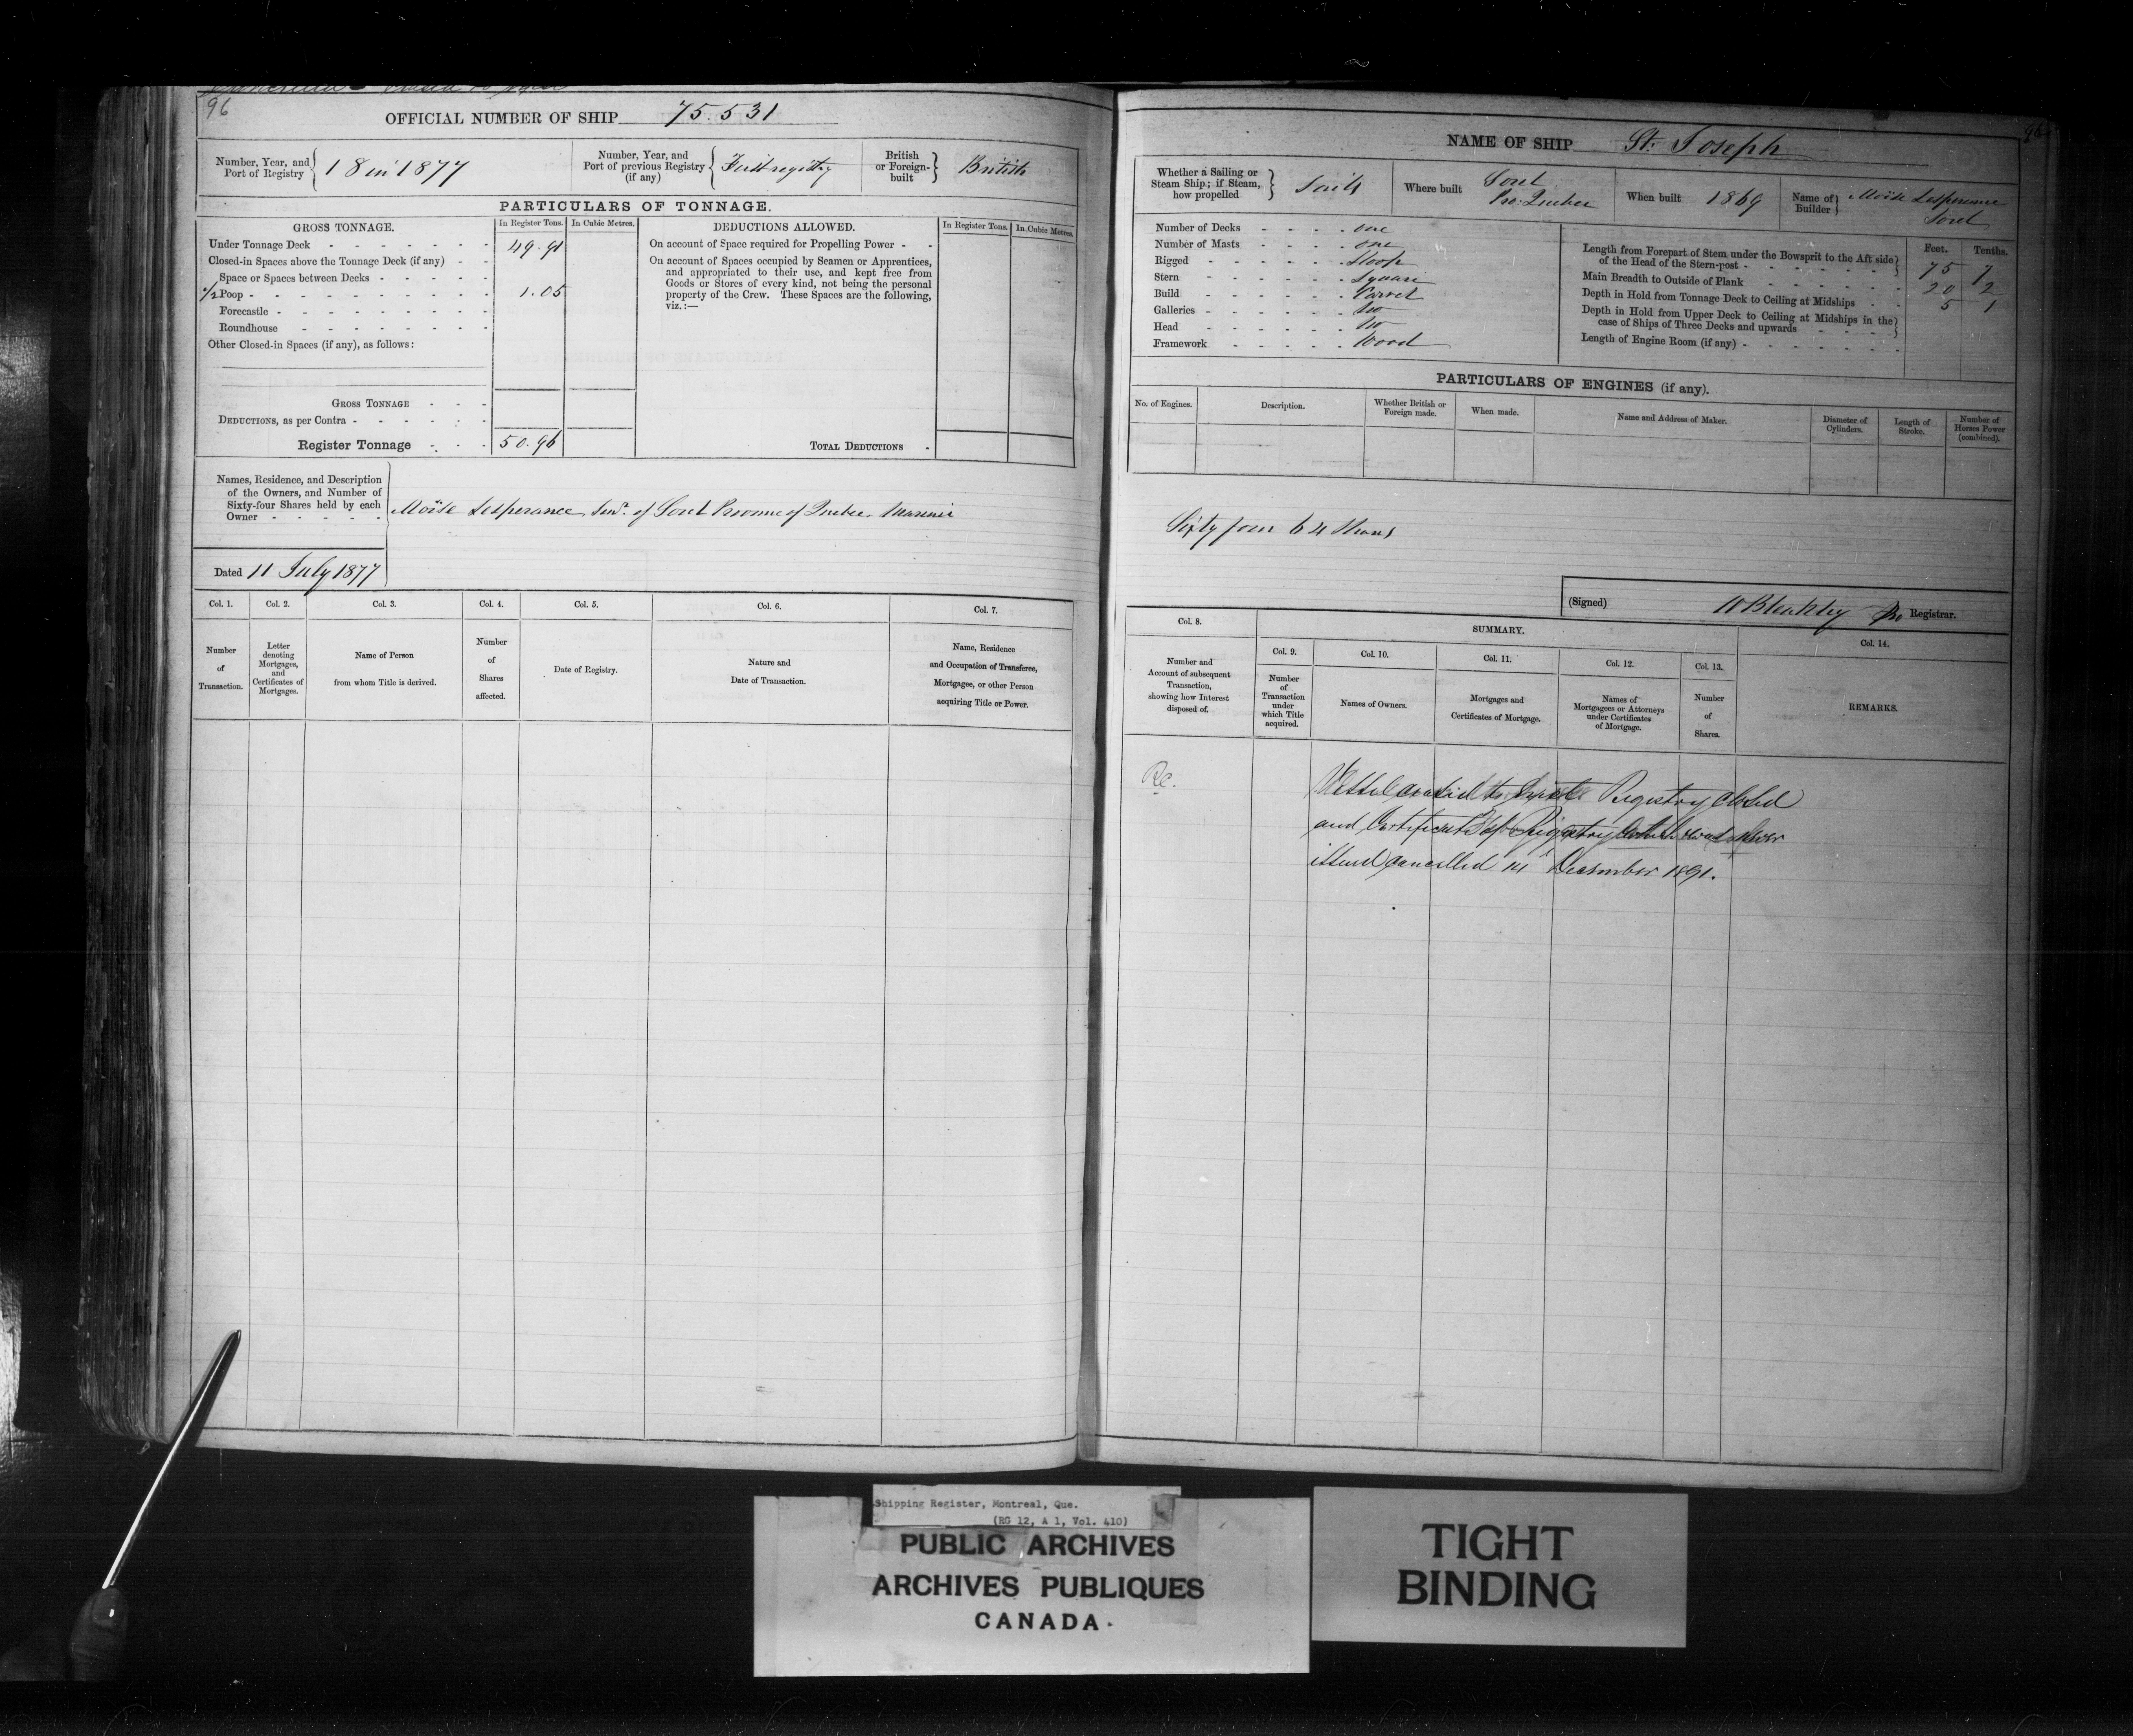 96
OFFICIAL NUMBER OF SHIP 75.531
Number, Year, and Port of Registry 18 in 1877
Number, Year, and Port of previous Registry (if any) First registry
British or Foreign-built British
PARTICULARS OF TONNAGE.
GROSS TONNAGE. In Register Tons. In Cubic Metres. DEDUCTIONS ALLOWED. In Register Tons. In Cubic Metres.
Under Tonnage Deck 49.91
Closed-in Spaces above the Tonnage Deck (if any)
Space or Spaces between Decks
Poop 1.05
Forecastle
Roundhouse
Other Closed-in Spaces (if any), as follows:
GROSS TONNAGE
DEDUCTIONS, as per Contra
Register Tonnage 50.96
On account of Space required for Propelling Power
On account of Spaces occupied by Seamen or Apprentices,
and appropriated to their use, and kept free from
Goods or Stores of every kind, not being the personal
property of the Crew. These Spaces are the following,
viz.:—
TOTAL DEDUCTIONS
Names, Residence, and Description
of the Owners, and Number of
Sixty-four Shares held by each
Owner
Moïse Lesperance Senr. of Sorel Province of Quebec Mariner
Dated 11 July 1877
Col. 1. Col. 2. Col. 3. Col. 4. Col. 5. Col. 6. Col. 7.
Number of Transaction.
Letter denoting Mortgages, and Certificates of Mortgages.
Name of Person from whom Title is derived.
Number of Shares affected.
Date of Registry.
Nature and Date of Transaction.
Name, Residence and Occupation of Transferee, Mortgagee, or other Person acquiring Title or Power.
NAME OF SHIP St. Joseph
96
Whether a Sailing or Steam Ship; if Steam, how propelled Sails
Where built Sorel Pro: Quebec
When built 1869
Name of Builder Moïse Lesperance Sorel
Number of Decks one
Number of Masts one
Rigged Sloop
Stern Square
Build Carvel
Galleries No
Head No
Framework Wood
Feet. Tenths.
Length from Forepart of Stem under the Bowsprit to the Aft side of the Head of the Stern-post 75 7
Main Breadth to Outside of Plank 20 2
Depth in Hold from Tonnage Deck to Ceiling at Midships 5 1
Depth in Hold from Upper Deck to Ceiling at Midships in the case of Ships of Three Decks and upwards
Length of Engine Room (if any)
PARTICULARS OF ENGINES (if any).
No. of Engines. Description. Whether British or Foreign made. When made. Name and Address of Maker. Diameter of Cylinders. Length of Stroke. Number of Horses Power (combined).
Sixty four 64 Shares
(Signed) W Bleakley Pro Registrar.
Col. 8. SUMMARY. Col. 14.
Col. 9. Col. 10. Col. 11. Col. 12. Col. 13.
Number and Account of subsequent Transaction, showing how Interest disposed of.
Number of Transaction under which Title acquired.
Names of Owners.
Mortgages and Certificates of Mortgage.
Names of Mortgagees or Attorneys under Certificates of Mortgage.
Number of Shares.
REMARKS.
Vessel ceased to exist Registry closed
and Certificate of Registry which was never
issued cancelled in December 1891.
Shipping Register, Montreal, Que.
(RG 12, A 1, Vol. 410)
PUBLIC ARCHIVES
ARCHIVES PUBLIQUES
CANADA
TIGHT
BINDING